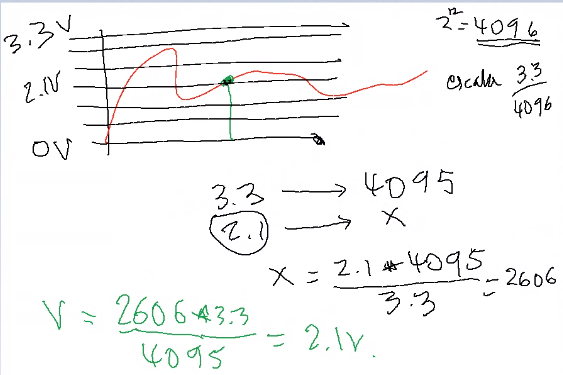 3.3V
2.1V
0V
2^12 = 4096
escala 3.3/4096
3.3 → 4095
2.1 → X
X = 2.1 * 4095 / 3.3 = 2606
V = 2606 * 3.3 / 4095 = 2.1V.